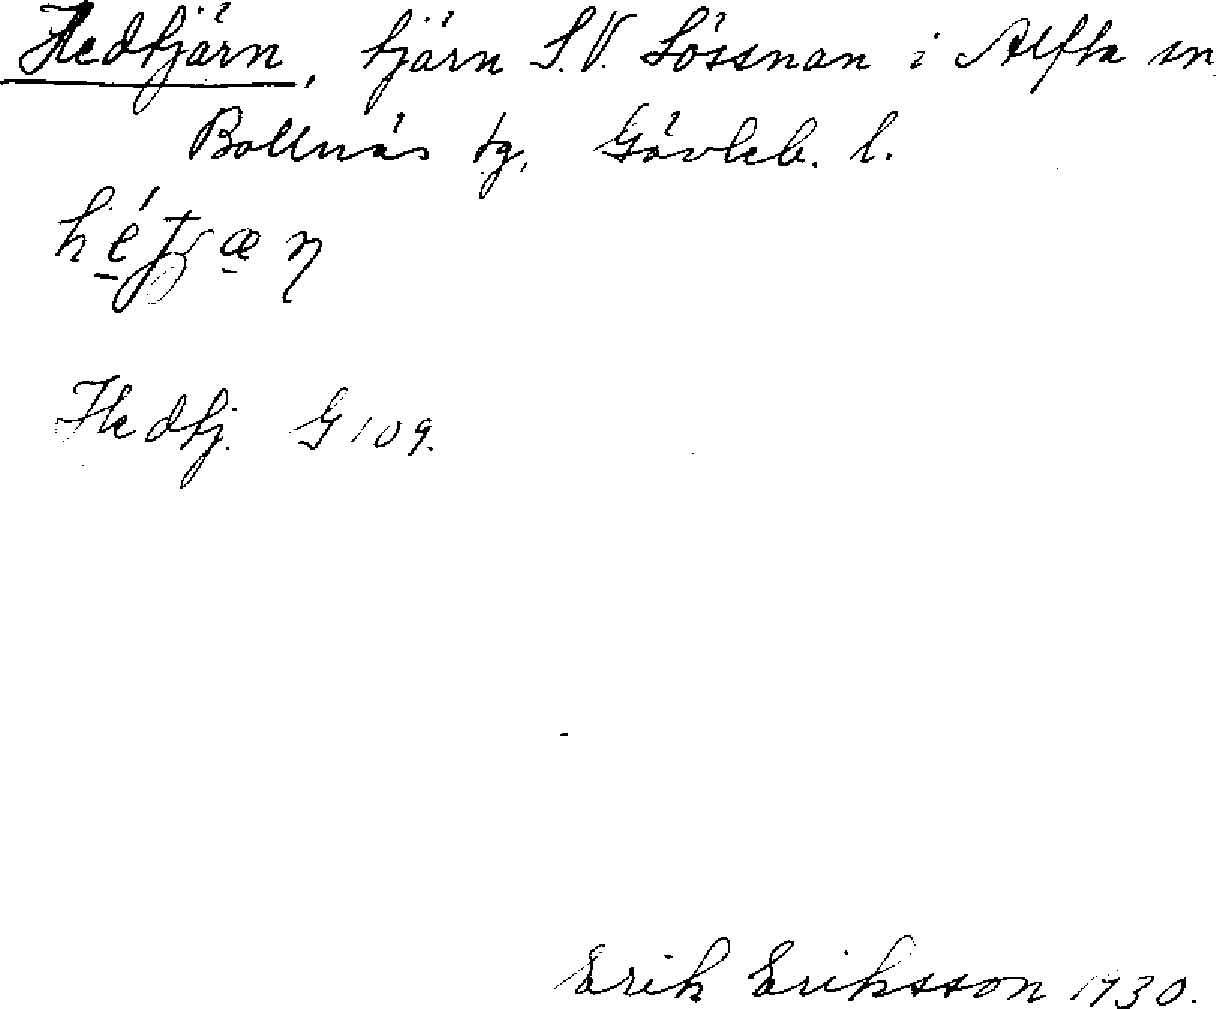 Hedtjärn, tjärn S.V. Lössnan i Alfta sn,
Bollnäs tg, Gävleb. l.
Hedtj. G 109.
Erik Eriksson 1930.